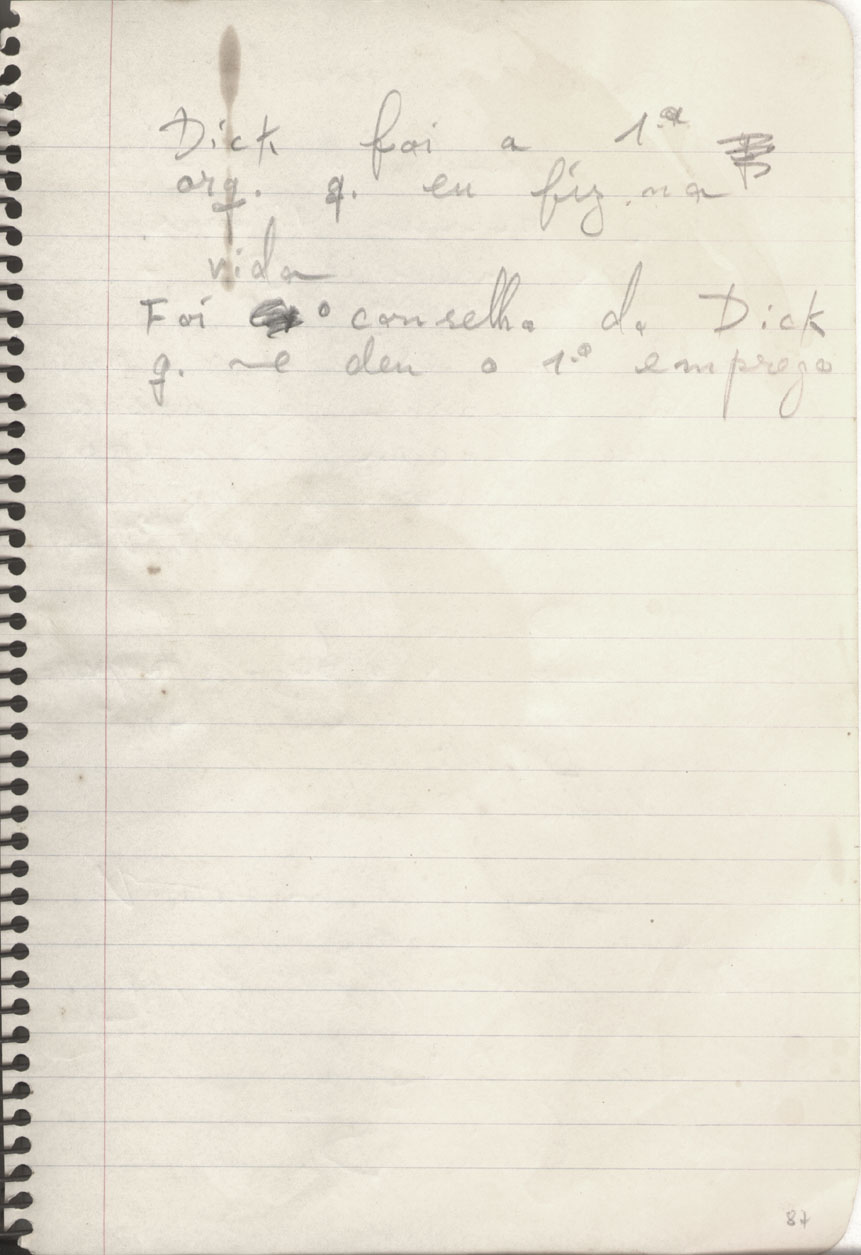 Dick foi a 1.ª
orq. q. eu fiz na
vida
Foi o conselho do Dick
q. me deu o 1.º emprego
87